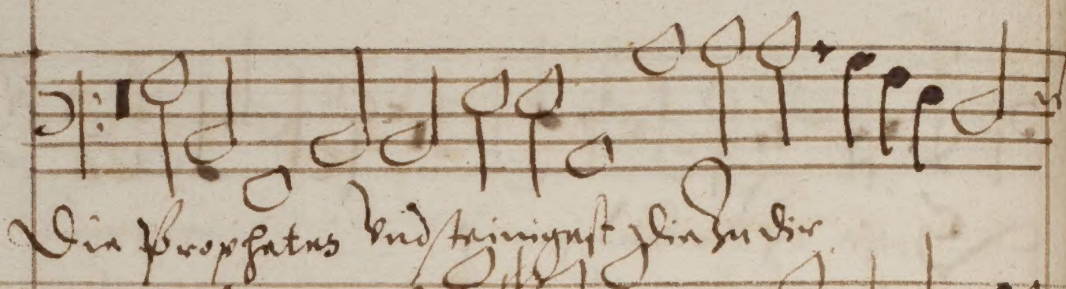 Die Prophetes Vnd steinigest die zu dir